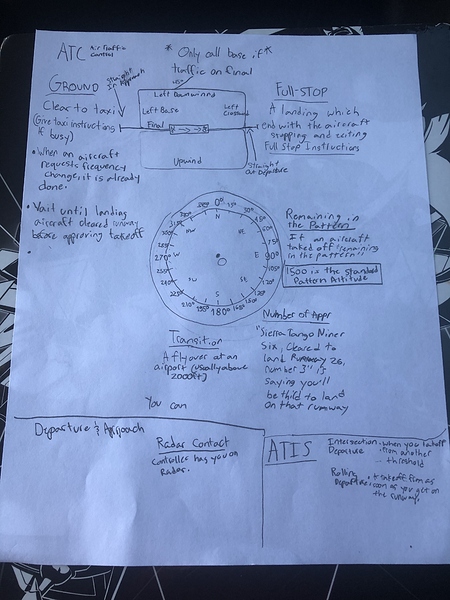 ATC Air Traffic
Control
* Only call base if *
traffic on final
Straight
In Approach
45°
GROUND
Clear to taxi
(Give taxi instructions
if busy)
• When an aircraft
requests frequency
change, it is already
done.
• Wait until landing
aircraft cleared runway
before approving takeoff
Left Downwind
Left Base
Left
Crosswind
Final
Upwind
Straight
Out Departure
Full-STOP
A landing which
end with the aircraft
stopping and exiting
Full Stop Instructions
0°
15°
30°
45°
90°
120°
150°
180°
195°
210°
225°
240°
270°
285°
300°
315°
330°
N
NE
E
SE
S
SW
W
NW
Remaining in
the Pattern
If an aircraft
takes off "remaining
in the pattern"
1500 is the standard
Pattern Altitude
Transition
A flyover at an
airport (usually above
2000ft)
You can
Number of Appr
"Sierra Tango Niner
Six, cleared to
land Runway 26,
number 3" is
saying you'll
be third to land
on that runway
Departure & Approach
Radar Contact
Controller has you on
Radar.
ATIS
Intersection when you takeoff
Departure from another
threshold
Rolling takeoff from as
Departure: soon as you get on
the runway.